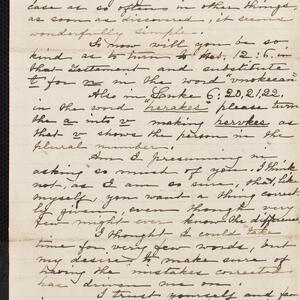 case as so often in other things,
as soon as discovered, it seems
wonderfully simple.
I now will you be so
kind as to turn to Heb. 12:6. in
that Testament and substitute
t for n in the word
Also in Luke 6:20,21,22.
in the word "herakes" please turn
the a into v making hervkes as
that v shows the person in the
plural number.
Am I presuming in
asking so much of you. I think
not, as I am so sure, that, like
myself, you want a thing correct-
ly given, even though very
few might ever know the difference
I thought I could take
time for very few words, but
my desire to make sure of
having the mistakes corrected
has driven me on.
I trust yourself and fam